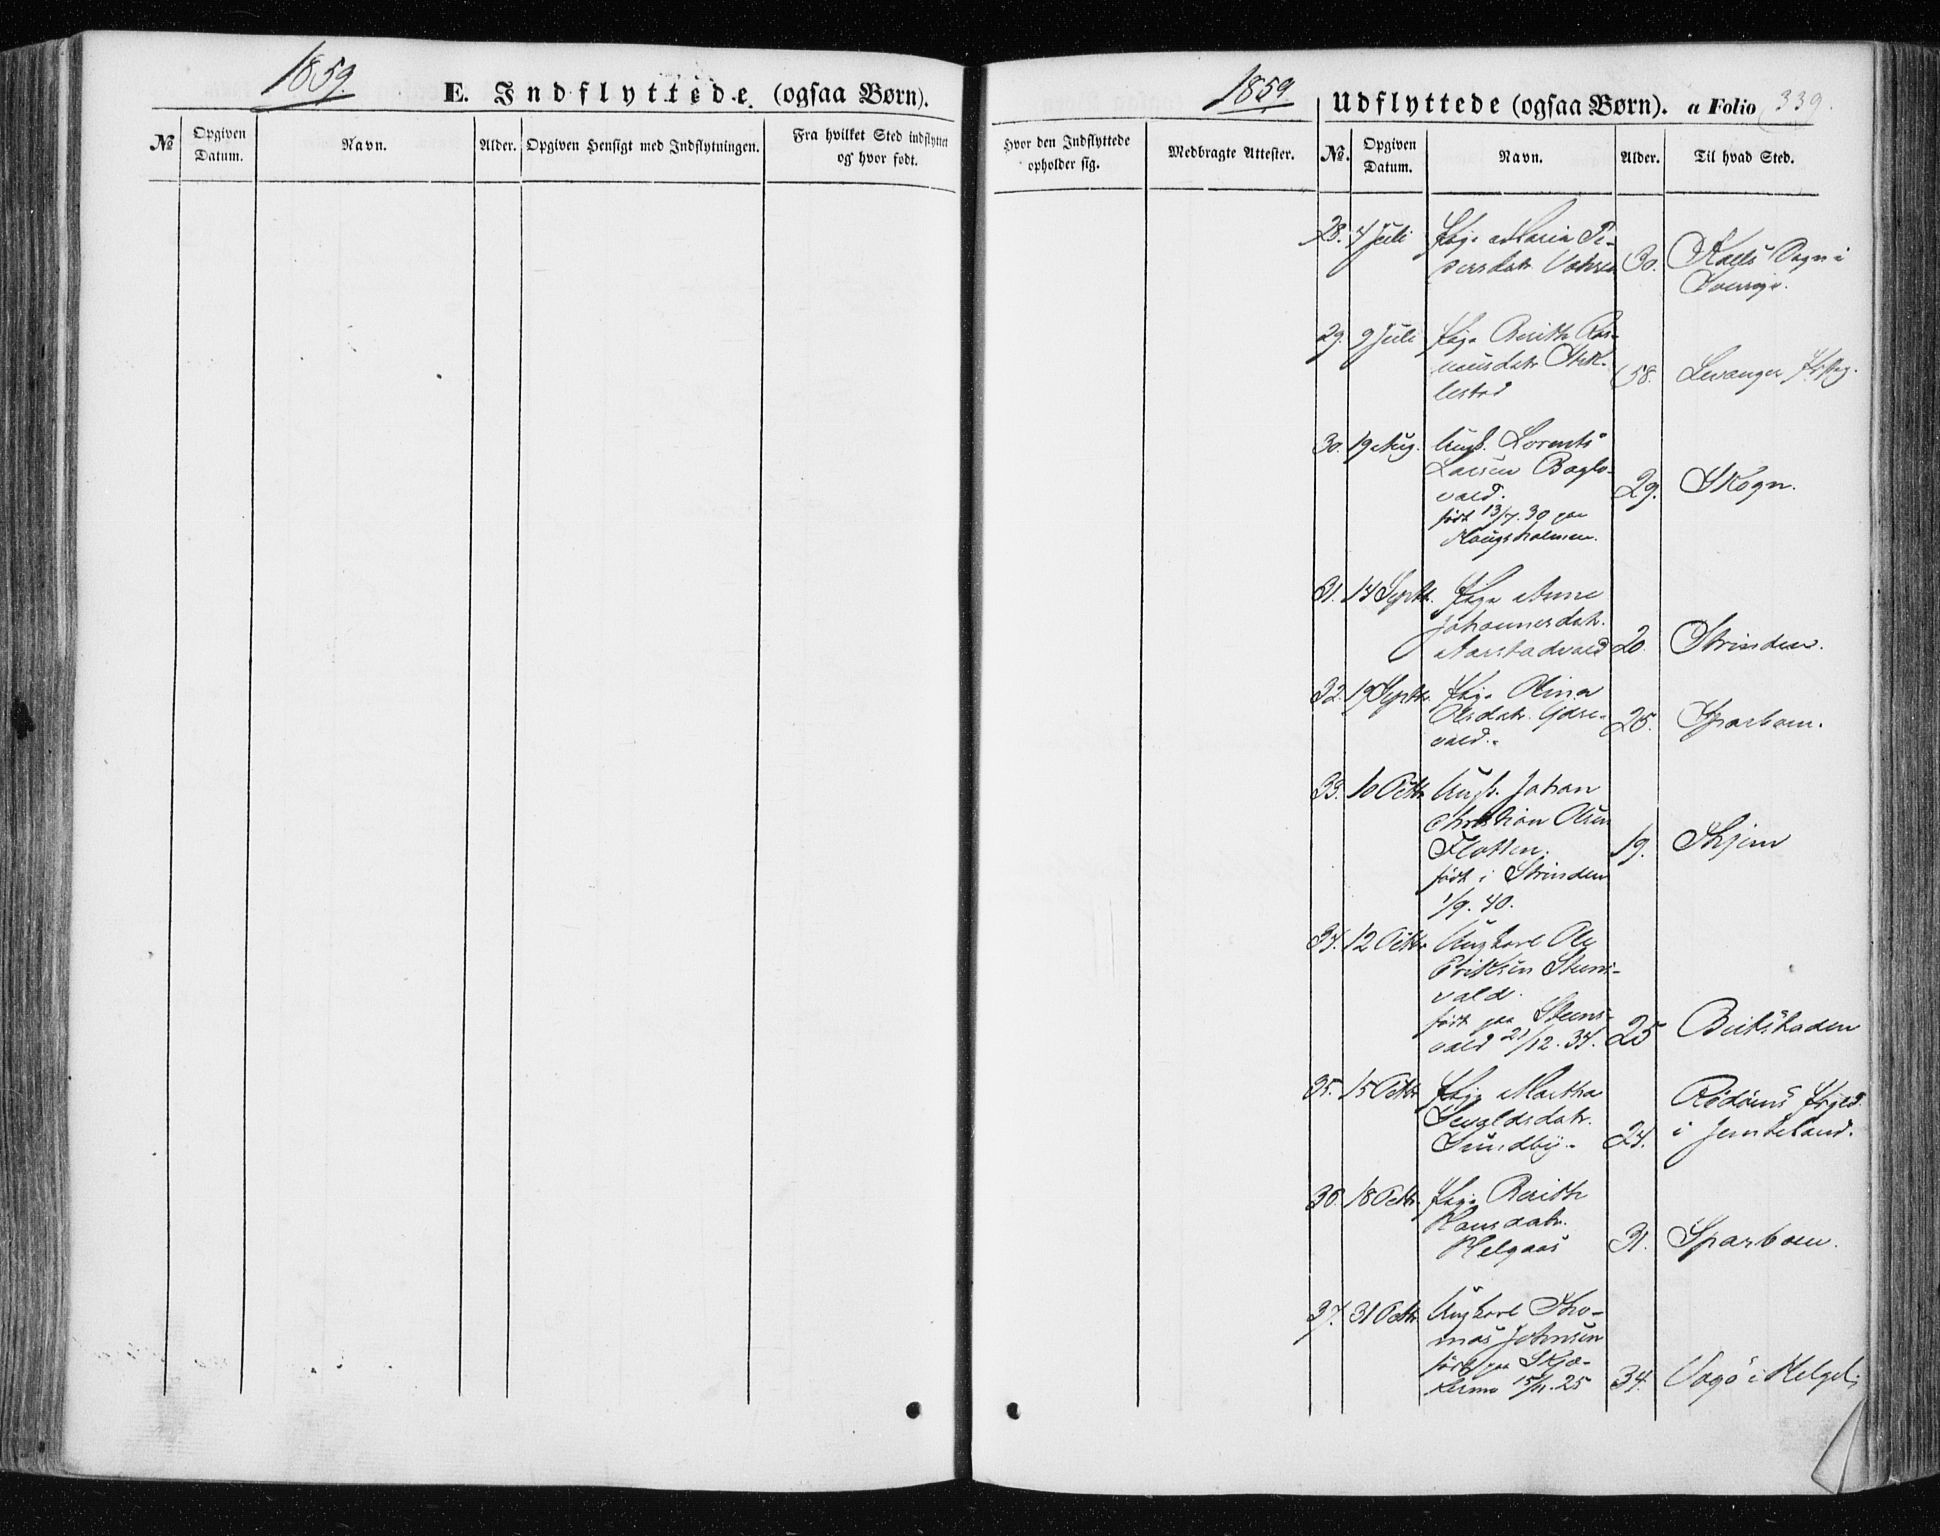 1859.
E. Indflyttede (ogsaa Børn).
№
Opgiven Datum.
Navn.
Alder.
Opgiven Hensigt med Indflytningen.
Fra hvilket Sted indflyttet og hvor født.
1859
Udflyttede (ogsaa Børn). a Folio 339.
Hvor den Indflyttede opholder sig.
Medbragte Attester.
№.
Opgiven Datum.
Navn.
Alder.
Til hvad Sted.
28. 4 Juli Pige Maria Pe-
dersdatr. 30. Kalls Sogn i
Sverige.
29. 9 Juli Pige Berith Ras-
musdatr.
lestad 58. Levanger
30. 19 Aug. Ungk. Lorents
Larsen Baglo-
vald. 29. Skogn.
født 13/7.30 paa
Haugsholmen.
31. 14 Septbr. Pige Anne
Johannesdatr.
20. Strinden.
32. 19 Septbr. Pige Olina
Olsdatr. Ydse-
vald. 25. Sparboen.
33. 10 Octbr Ungk. Johan
Christian Olsen
Flotten. 19. Skjem
født i Strinden
1/9. 40.
34. 12 Octbr Ungkarl Ole
Eriksen Steens-
vald.
født paa Steens-
vald 21/12. 34. 25 Beitstaden
35. 15 Octbr Pige Martha
Sevaldsdatr.
Sundby. 24. Rödöens Prgjeld
i Jemteland.
36. 18 Octbr. Pige Berith
Hansdatr.
Helgaas 31. Sparboen.
37. 31 Octbr Ungkarl Tho-
mas Johnsen
født paa Skjæ-
kermo 15/11. 25 34. Vegö i Helgel.